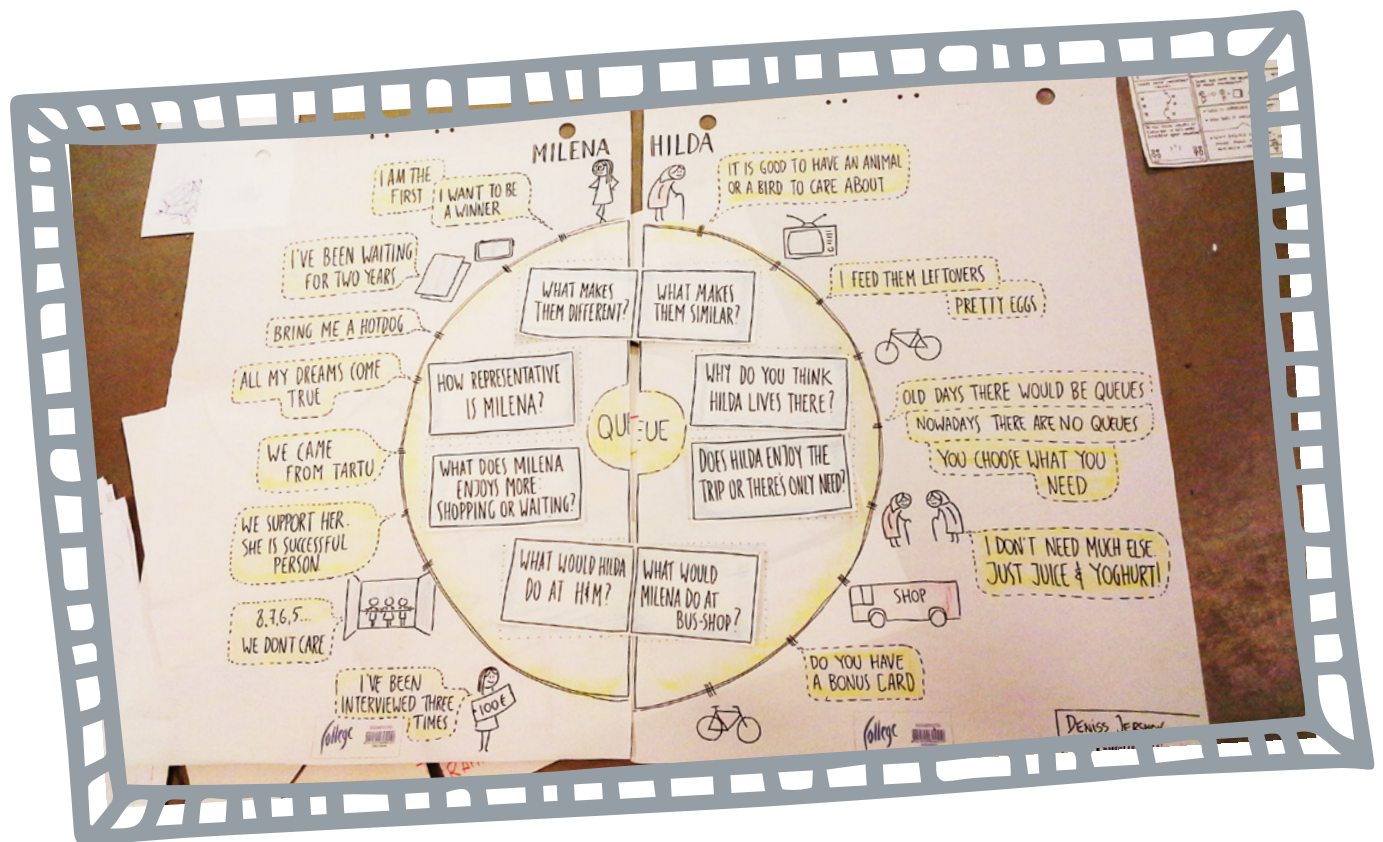 MILENA
HILDA
I AM THE
FIRST
I WANT TO BE
A WINNER
I'VE BEEN WAITING
FOR TWO YEARS
BRING ME A HOTDOG
ALL MY DREAMS COME
TRUE
WE CAME
FROM TARTU
WE SUPPORT HER.
SHE IS SUCCESSFUL
PERSON
8,7,6,5...
WE DON'T CARE
I'VE BEEN
INTERVIEWED THREE
TIMES
100€
College
WHAT MAKES
THEM DIFFERENT?
WHAT MAKES
THEM SIMILAR?
HOW REPRESENTATIVE
IS MILENA?
WHY DO YOU THINK
HILDA LIVES THERE?
QUEUE
WHAT DOES MILENA
ENJOYS MORE:
SHOPPING OR WAITING?
DOES HILDA ENJOY THE
TRIP OR THERE'S ONLY NEED?
WHAT WOULD HILDA
DO AT H&M?
WHAT WOULD
MILENA DO AT
BUS-SHOP?
IT IS GOOD TO HAVE AN ANIMAL
OR A BIRD TO CARE ABOUT
I FEED THEM LEFTOVERS
PRETTY EGGS
OLD DAYS THERE WOULD BE QUEUES
NOWADAYS THERE ARE NO QUEUES
YOU CHOOSE WHAT YOU
NEED
I DON'T NEED MUCH ELSE.
JUST JUICE & YOGHURT!
SHOP
DO YOU HAVE
A BONUS CARD
College
DENISS